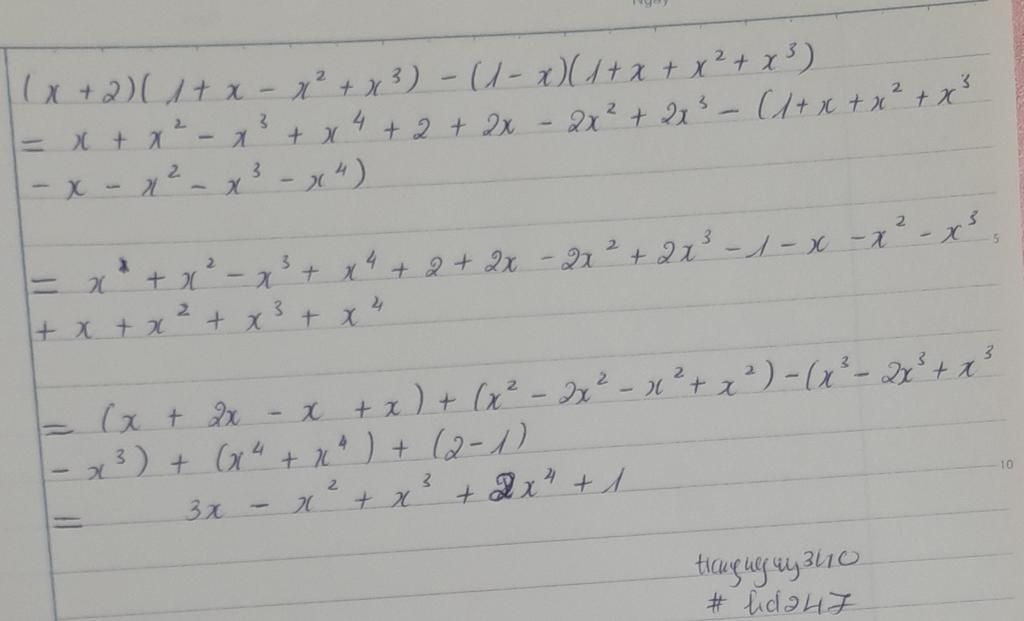 Ngày
(x + 2)(1 + x - x² + x³) - (1 - x)(1 + x + x² + x³)
= x + x² - x³ + x⁴ + 2 + 2x - 2x² + 2x³ - (1 + x + x² + x³
- x - x² - x³ - x⁴)
= x + x² - x³ + x⁴ + 2 + 2x - 2x² + 2x³ - 1 - x - x² - x³
5
+ x + x² + x³ + x⁴
= (x + 2x - x + x) + (x² - 2x² - x² + x²) - (x³ - 2x³ + x³
- x³) + (x⁴ + x⁴) + (2 - 1)
10
= 3x - x² + x³ + 2x⁴ + 1
# hd247